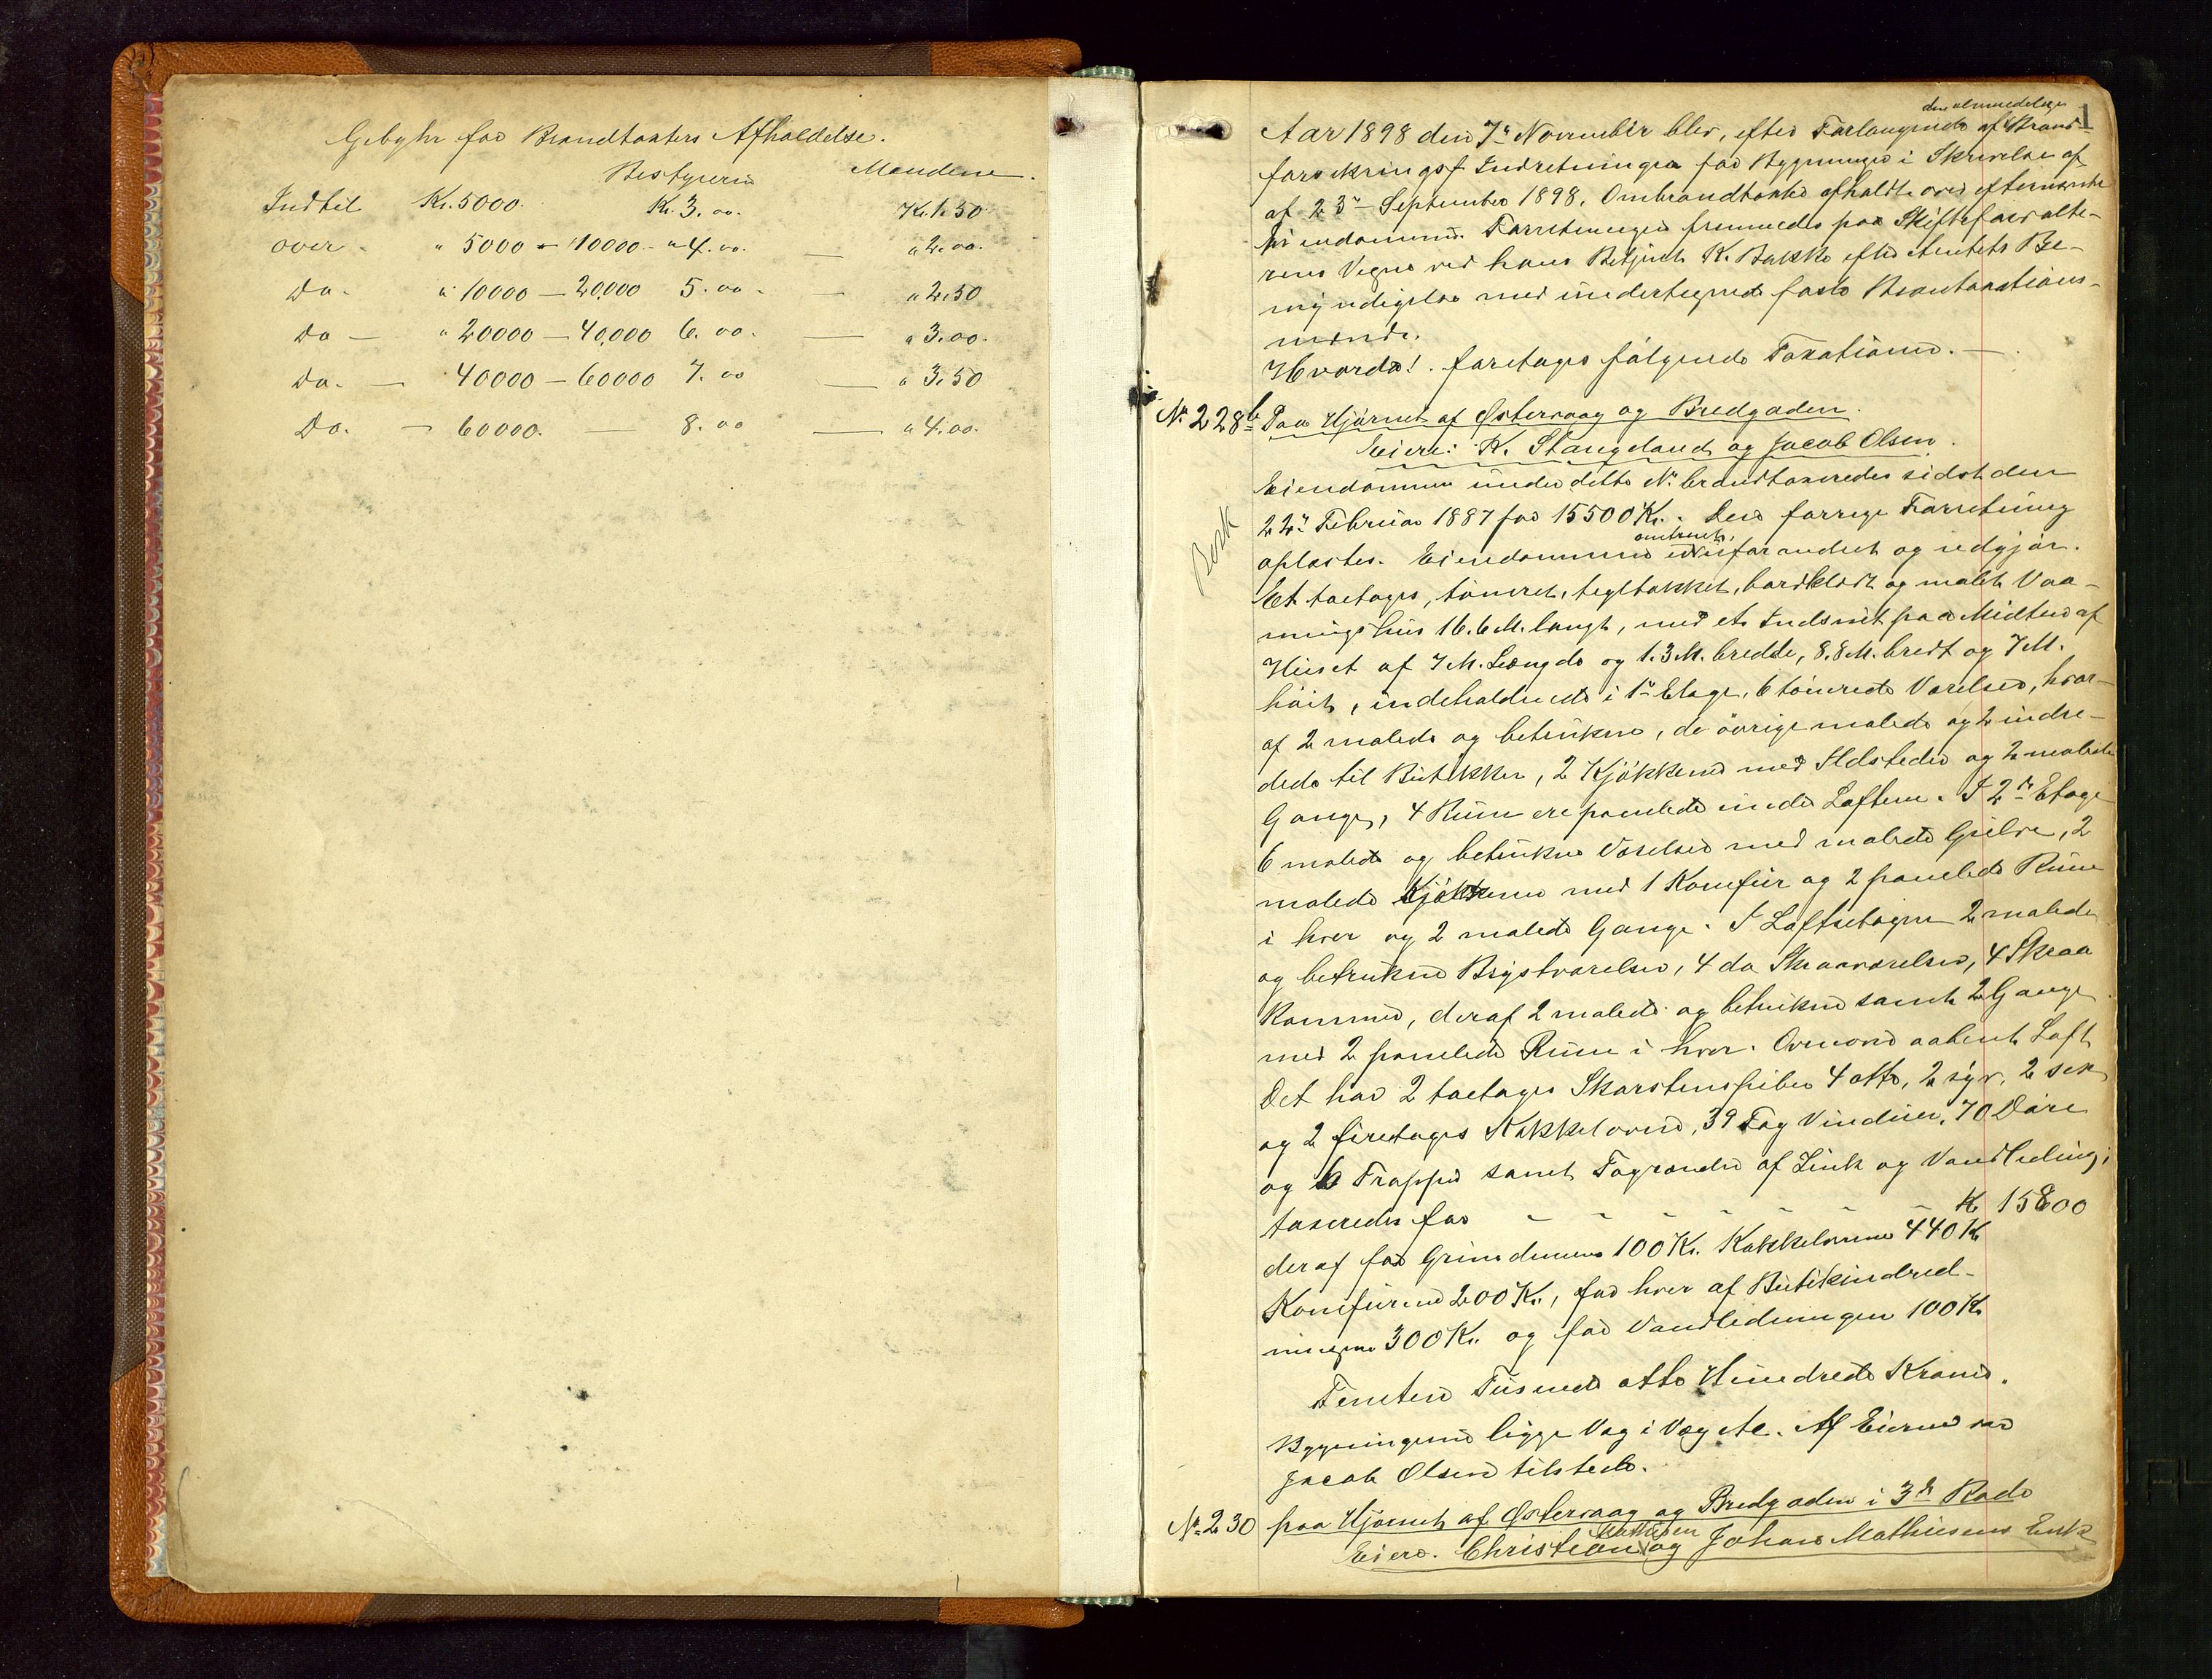 Gebyhr for Brandtaxters Afholdelse.
Bestyreren Mændene.
Indtil Kr. 5000. Kr. 3.00. Kr. 1.50
over - " 5000 - 10000 - " 4.00. — " 2.00.
Do. " 10000 — 20,000 5.00. — " 2.50
Do — " 20000 — 40,000 6.00. — " 3.00.
Do. — 40000 — 60000 7.00 — " 3.50
Do. — 60000. — 8.00 — " 4.00.
1
den almindelige
Aar 1898 den 7de November blev, efter Forlangende af Brand-
forsikrings Indretningen for Bygninger i Skrivelse af
af 23de September 1898, Ombrandtaxt afholdt over efternævnte
Eiendomme. Forretningen fremmedes paa Skifteforvalte-
rens Vegne ved hans Betjent K. Bakke efter Amtets Be-
myndigelse med undertegnede faste Brandtaxations-
mænd.
Hvorda! foretages følgende Taxationer. —
No 228b Paa Hjørnet af Østervaag og Bredgaden.
Eiere: K. Stangeland og Jacob Olsen.
Besk
Eiendommen under dette No brandtaxeredes sidst den
22de Februar 1887 for 15500 Kr. Den forrige Forretning
omtrent
oplæstes. Eiendommen uforandret og udgjør.
Et toetages, tømret, tegltækket, bordklædt og malet Vaa-
ningshus 16.6 M. langt, med et Indsnit paa Midten af
Huset af 7 M. Længde og 1.3 M. bredde, 8.8 M. bredt og 7 M.
høit, indeholdende i 1ste Etage, 6 tømrede Værelser, hvor-
af 2 malede og betrukne, de øvrige malede og 2 indre-
dede til Butikker, 2 Kjøkkener med Ildsteder og 2 malede
Gange, 4 Rum ere panelede under Loftene. I 2den Etage
6 malede og betrukne Værelser med malede Gulve, 2
malede Kjøkkener med 1 Komfur og 2 panelede Rum
i hver og 2 malede Gange. I Loftsetagen 2 malede
og betrukne Brystværelser, 4 do Skraaværelser, 4 Skraa
Kammer, deraf 2 malede og betrukne samt 2 Gange
med 2 panelede Rum i hver. Ovenover aabent Loft
Det har 2 toetages Skorstenspiber 4 otte, 2 syv, 2 sex
og 2 firetages Kakkelovne, 39 Fag Vinduer, 70 Døre
og 6 Trapper samt Tagrender af Zink og Vandledning;
taxeredes for - - - - - - - Kr 15800
deraf for Grundmuren 100 Kr. Kakkelovnene 440 Kr
Komfurene 200 Kr., for hver af Butikindred-
ningerne 300 Kr. og for Vandledningen 100 Kr
Femten Tusinde otte Hundrede Kroner.
Bygningerne ligge Væg i Væg etc. Af Eierne var
Jacob Olsen tilstede.
No 230 paa Hjørnet af Østervaag og Bredgaden i 3de Rode
Mathiesen
Eiere. Christian og Johan Mathiesens Enke